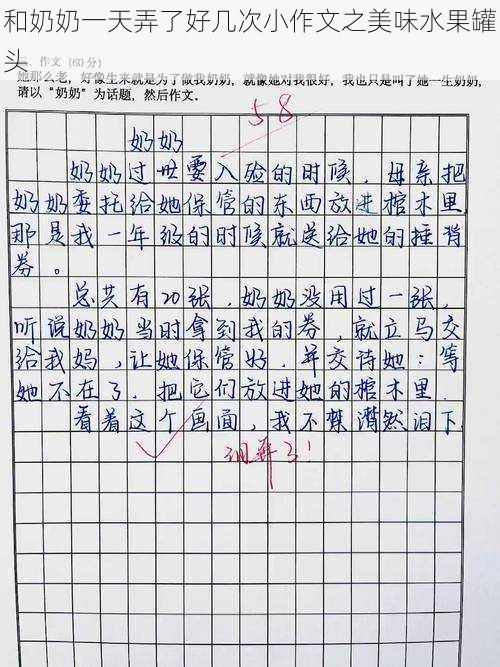 和奶奶一天弄了好几次小作文之美味水果罐
头
、作文（60 分）
她那么老，好像生来就是为了做我奶奶，就像她对我很好，我也只是叫了她一生奶奶，
请以“奶奶”为话题，然后作文。
58
奶奶
奶奶过世要入殓的时候，母亲把
奶奶委托给她保管的东西放进棺木里
那是我一年级的时候就送给她的捶背
券。
总共有20张，奶奶没用过一张，
听说奶奶当时拿到我的券，就立马交
给我妈，让她保管好，并交待她：等
她不在了，把它们放进她的棺木里.
看着这个画面，我不禁潸然泪下.
泪奔了！